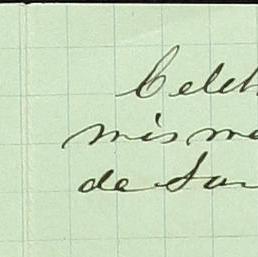 Celeb
mis me
de San